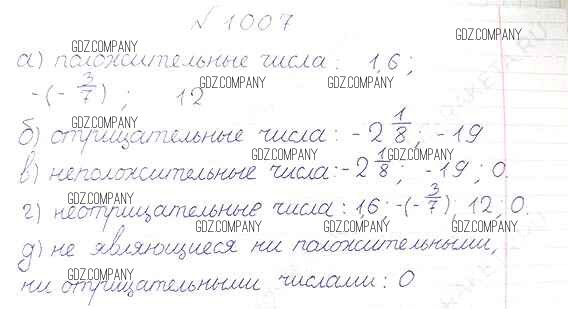 №1007
GDZ.COMPANY GDZ.COMPANY
а) положительные числа: 1,6;
GDZ.COMPANY GDZ.COMPANY
-(-3/7); 12
GDZ.COMPANY GDZ.COMPANY
б) отрицательные числа: -2 1/8; -19
GDZ.COMPANY GDZ.COMPANY
в) неположительные числа: -2 1/8; -19; 0.
GDZ.COMPANY GDZ.COMPANY
г) неотрицательные числа: 1,6; -(-3/7); 12; 0.
GDZ.COMPANY GDZ.COMPANY GDZ.COMPANY
д) не являющиеся ни положительными,
GDZ.COMPANY
ни отрицательными числами: 0